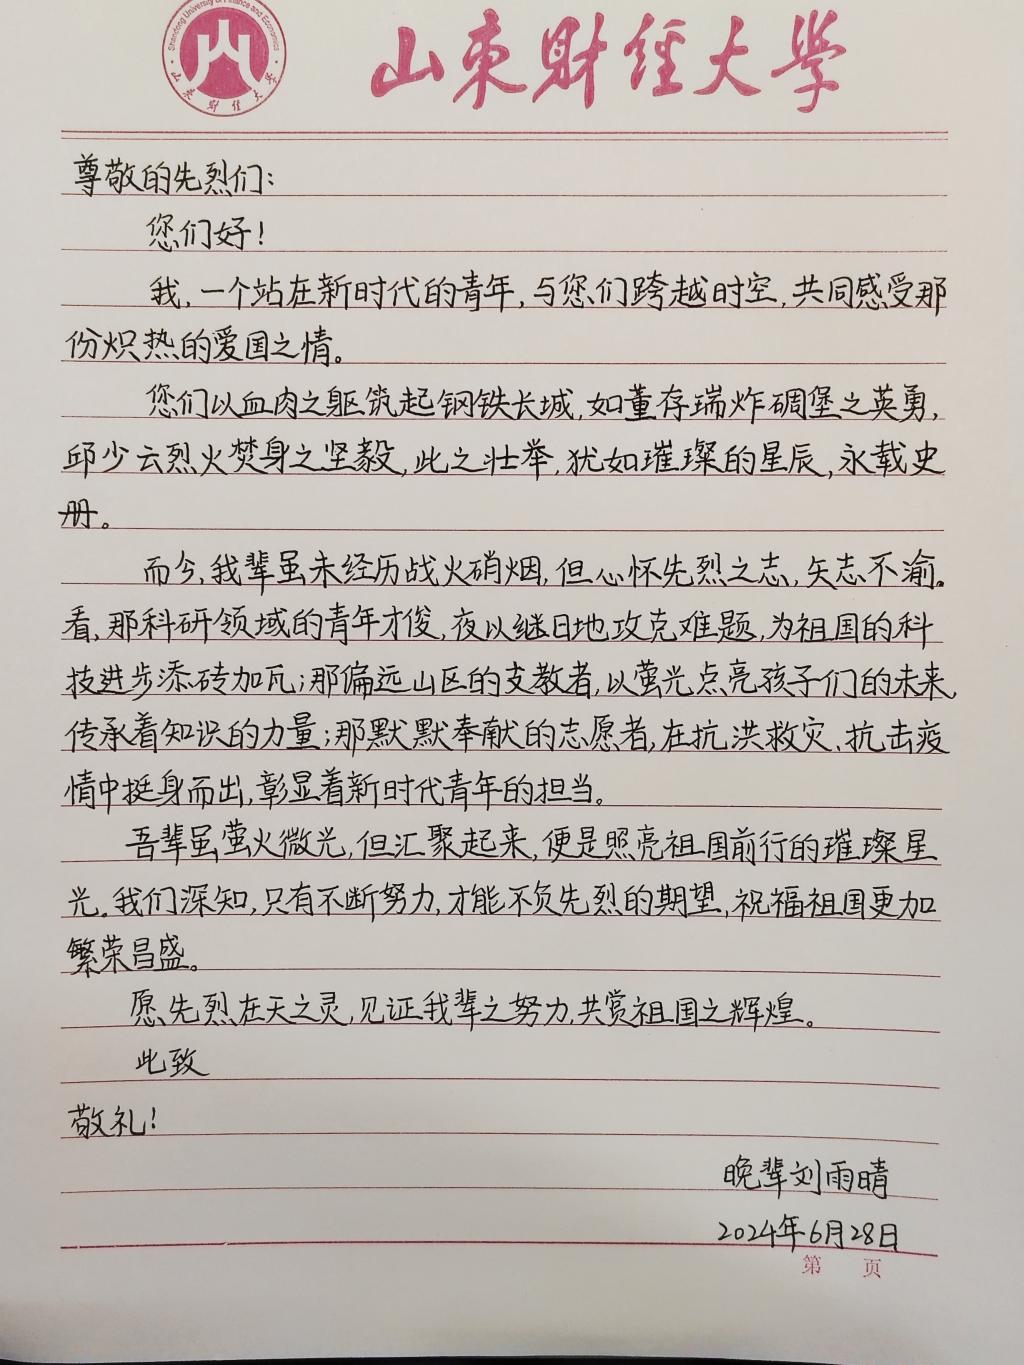 Shandong University of Finance and Economics
山东财经大学
山东财经大学
尊敬的先烈们:
您们好!
我,一个站在新时代的青年,与您们跨越时空,共同感受那
份炽热的爱国之情。
您们以血肉之躯筑起钢铁长城,如董存瑞炸碉堡之英勇,
邱少云烈火焚身之坚毅,此之壮举,犹如璀璨的星辰,永载史
册。
而今,我辈虽未经历战火硝烟,但心怀先烈之志,矢志不渝。
看,那科研领域的青年才俊,夜以继日地攻克难题,为祖国的科
技进步添砖加瓦;那偏远山区的支教者,以萤光点亮孩子们的未来,
传承着知识的力量;那默默奉献的志愿者,在抗洪救灾、抗击疫
情中挺身而出,彰显着新时代青年的担当。
吾辈虽萤火微光,但汇聚起来,便是照亮祖国前行的璀璨星
光。我们深知,只有不断努力,才能不负先烈的期望,祝福祖国更加
繁荣昌盛。
愿先烈在天之灵,见证我辈之努力,共赏祖国之辉煌。
此致
敬礼!
晚辈刘雨晴
2024年6月28日
第 页